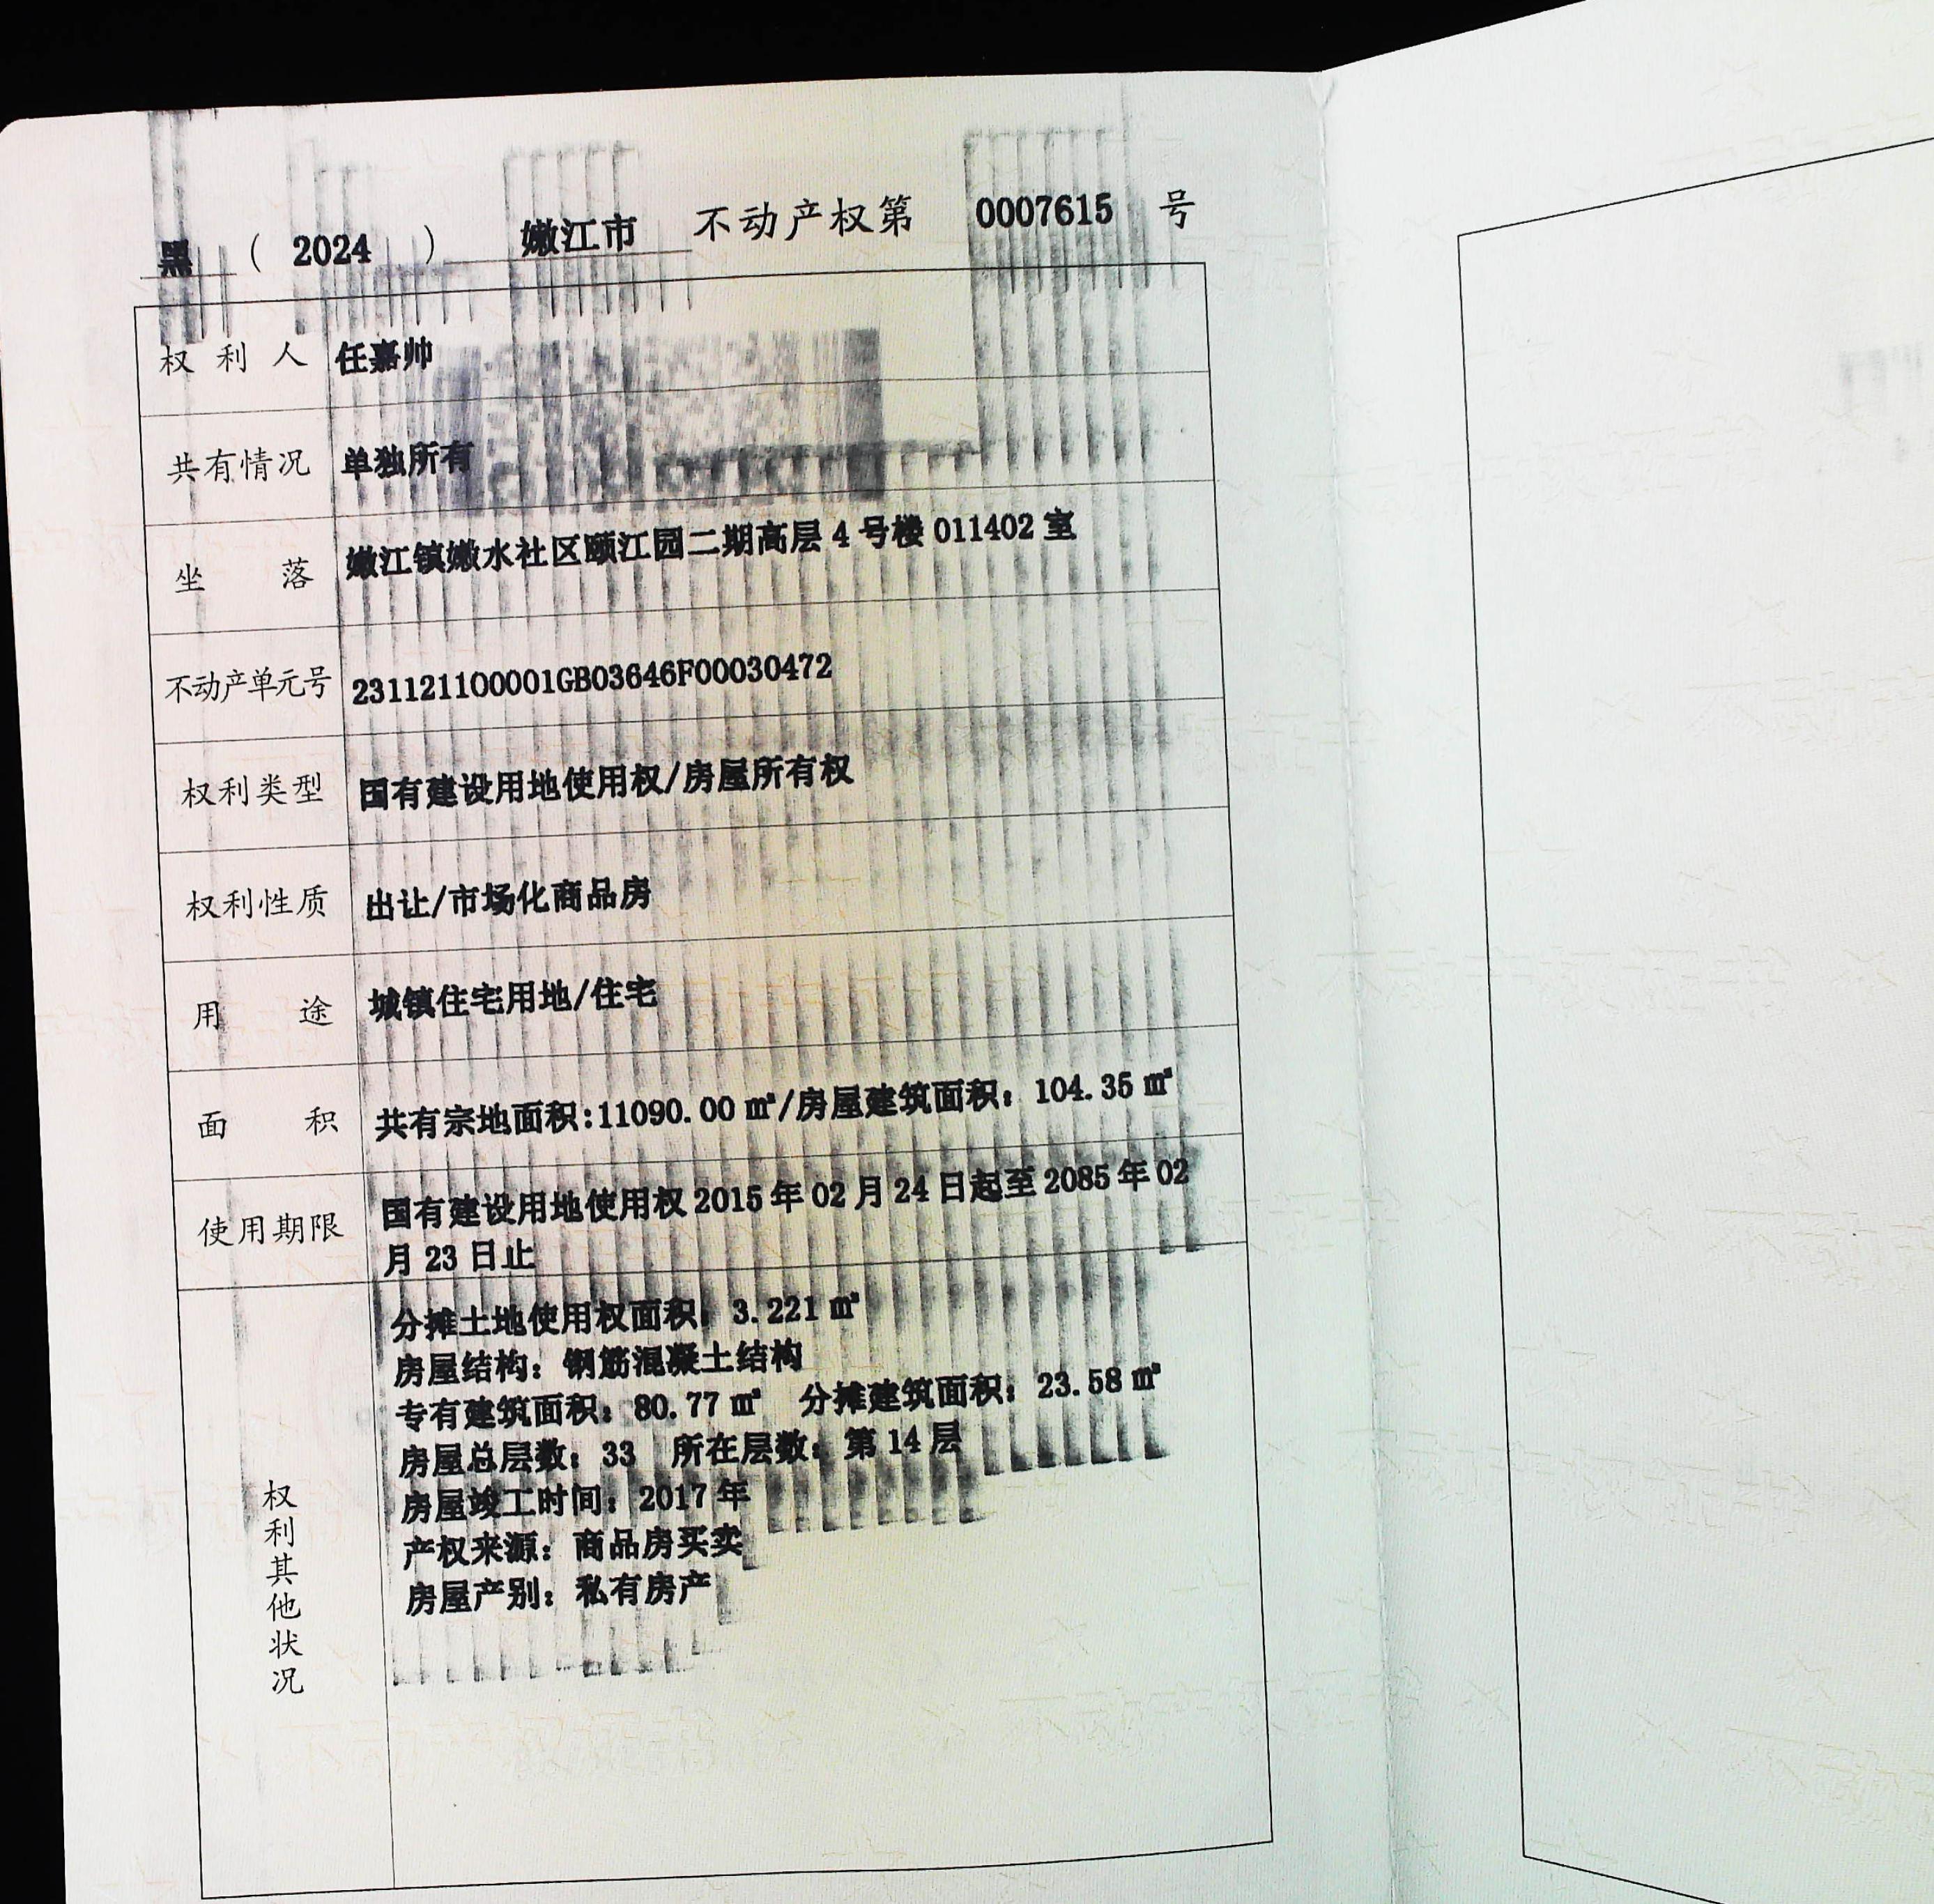 黑（2024）嫩江市不动产权第0007615号
权利人 任嘉帅
共有情况 单独所有
坐落 嫩江镇嫩水社区颐江园二期高层4号楼011402室
不动产单元号 231121100001GB03646F00030472
权利类型 国有建设用地使用权/房屋所有权
权利性质 出让/市场化商品房
用途 城镇住宅用地/住宅
面积 共有宗地面积:11090.00㎡/房屋建筑面积：104.35㎡
使用期限 国有建设用地使用权2015年02月24日起至2085年02
月23日止
权利其他状况
分摊土地使用权面积：3.221㎡
房屋结构：钢筋混凝土结构
专有建筑面积：80.77㎡ 分摊建筑面积：23.58㎡
房屋总层数：33 所在层数：第14层
房屋竣工时间：2017年
产权来源：商品房买卖
房屋产别：私有房产